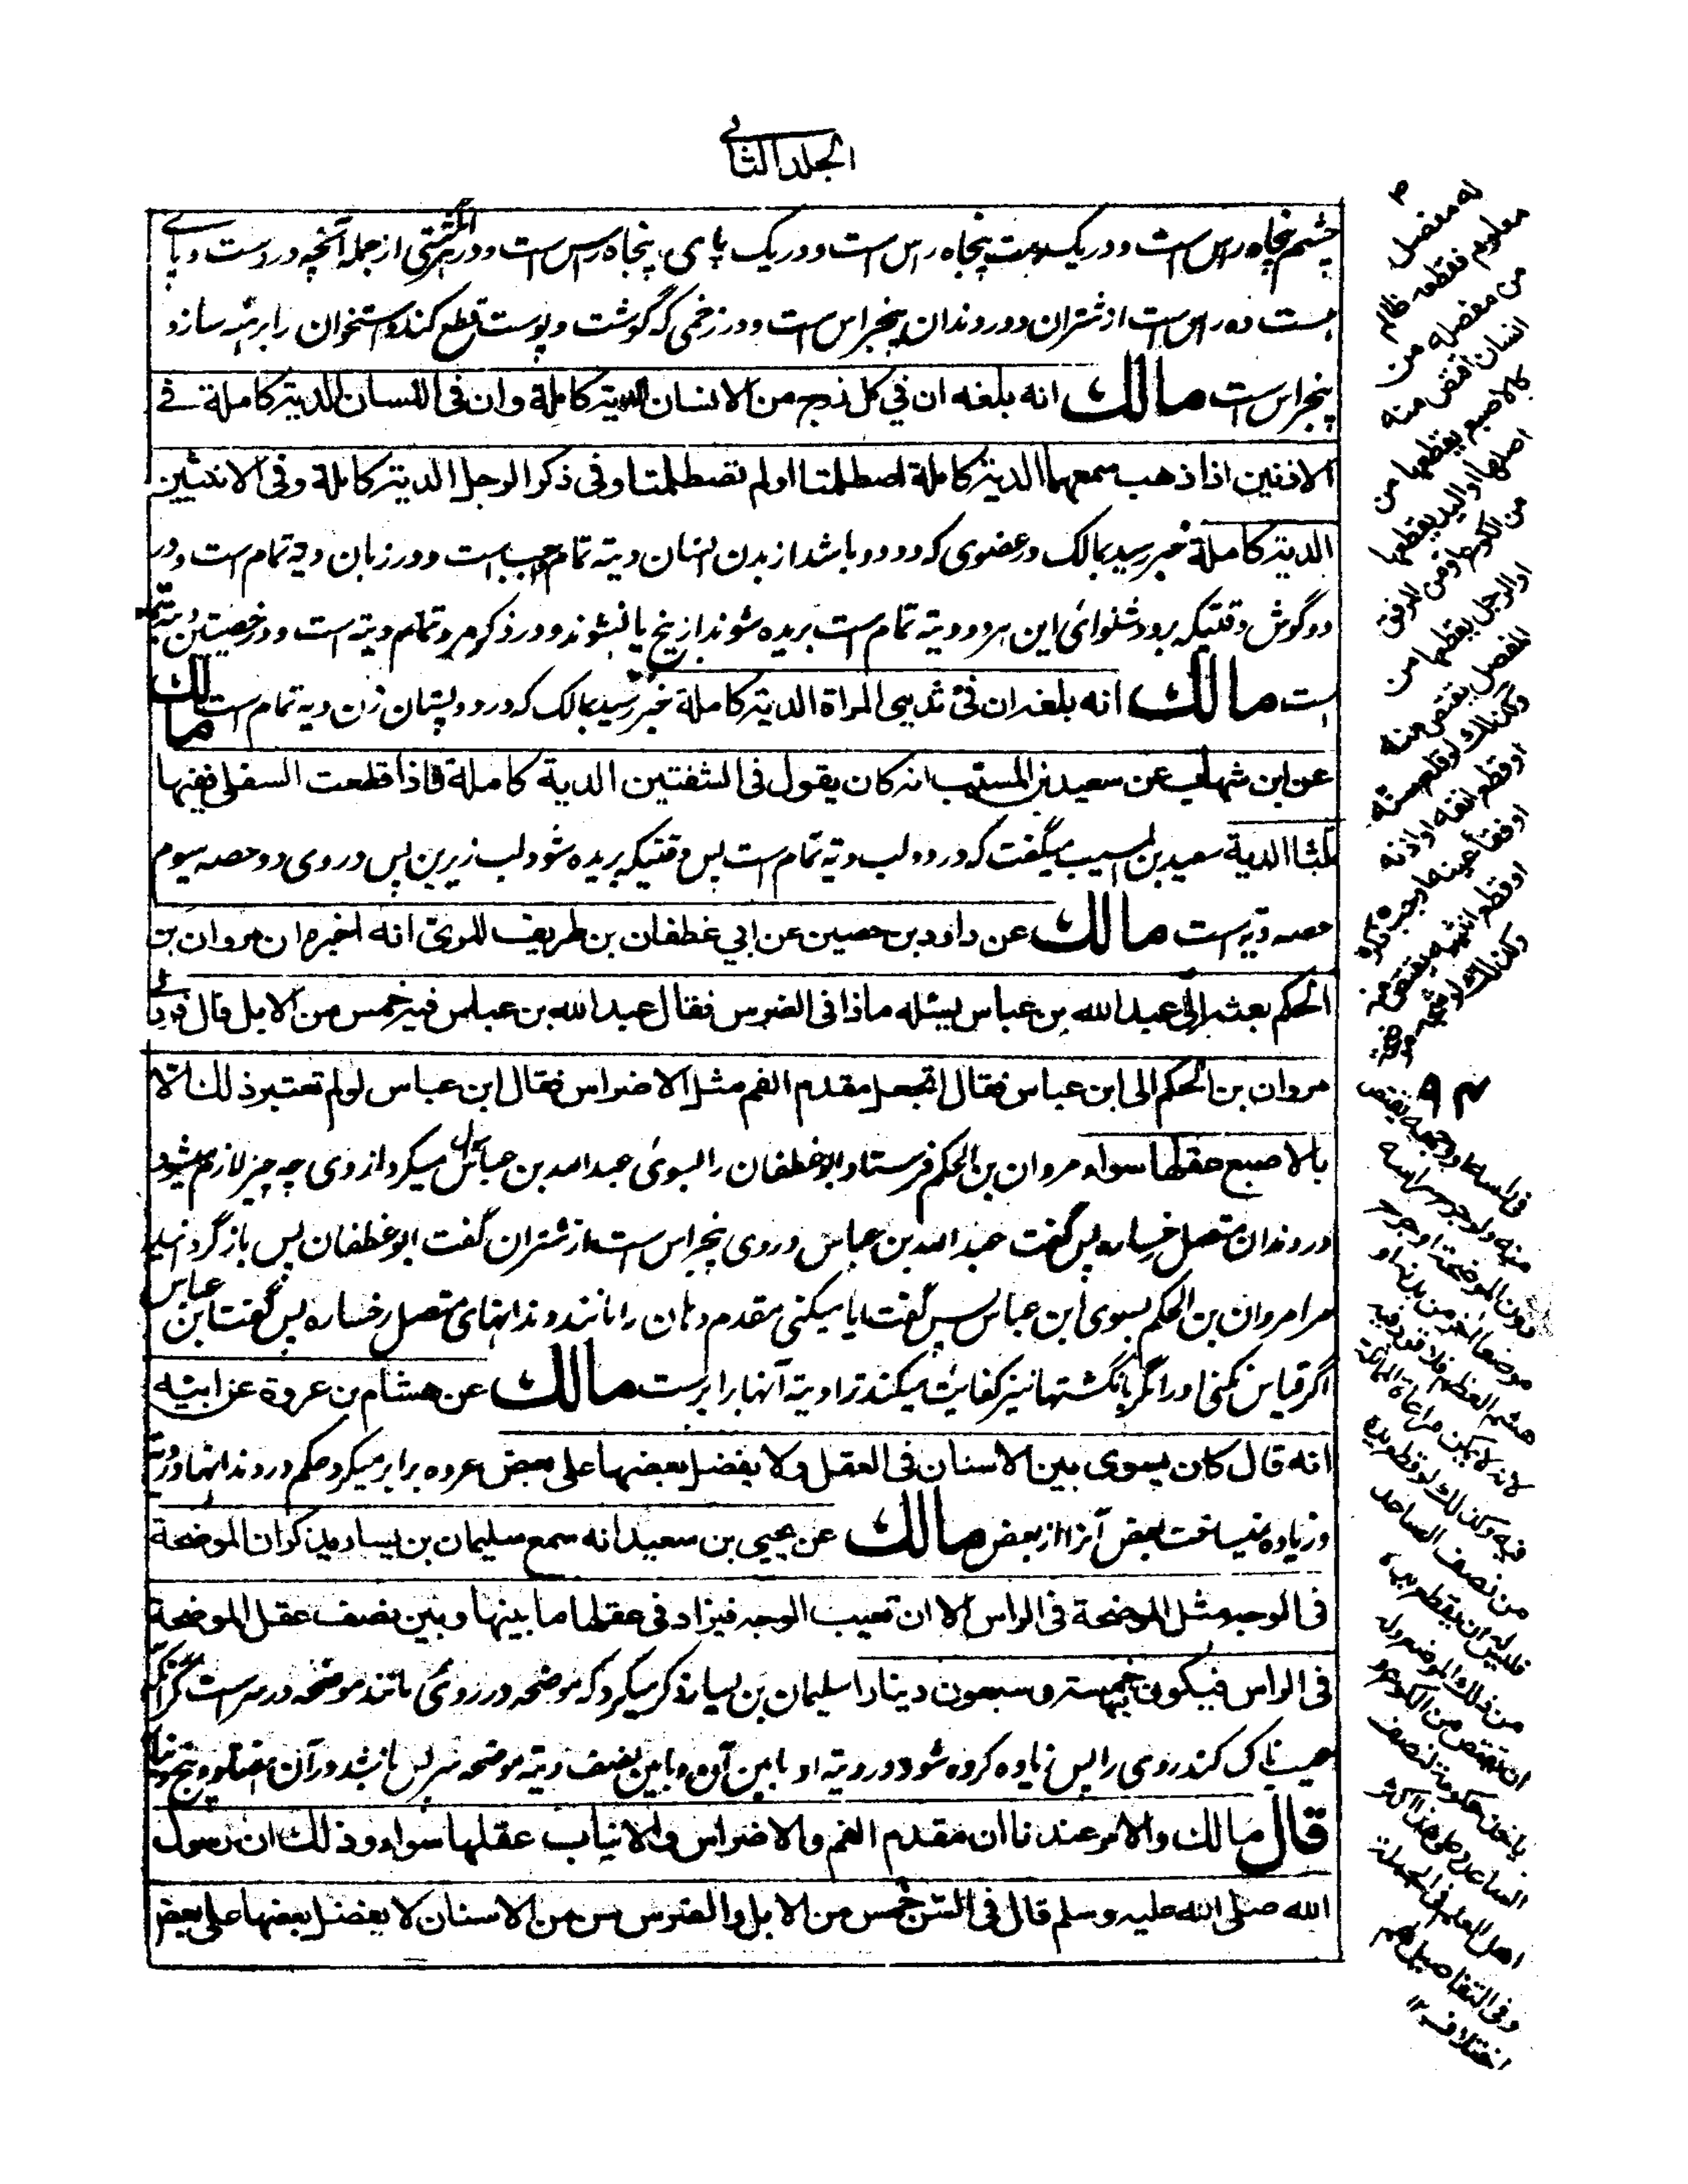 الجلد الثانی
چشم پنجاه راس است و در یک دست پنجاه راس است و در یک پای پنجاه راس است و در هر انگشتی از جمله آنچه در دست و پای
هست ده راس است از شتران و در دندان پنج راس است و در زخمی که گوشت و پوست قطع کند و استخوان را برهنه سازد
پنج راس است مالك انه بلغه ان في كل زوج من الانسان الدية كاملة وان فى اللسان الدية كاملة في
الاذنين اذا ذهب سمعهما الدية كاملة اصطلمتا اولم تصطلمتا وفى ذكر الرجل الدية كاملة وفى الانثيين
الدية كاملة خبر رسید بمالک در عضوی که دو دو باشد از بدن انسان دیت تمام واجب است و در زبان دیه تمام است و در
دو گوش وقتیکه برود شنوائ این هر دو دیه تمام است بریده شوند از بیخ یا نشوند و در ذکر مرد تمام دیه است و در خصیتین دیه تمام
است مالك انه بلغه ان فى ثديى المراة الدية كاملة خبر رسید بمالک که در دو پستان زن دیه تمام است مالك
عن ابن شهاب عن سعيد بن المسيب انه كان يقول فى الشفتين الدية كاملة فاذا قطعت السفلى ففيها
ثلثا الدية سعید بن المسیب میگفت که در دو لب دیه تمام است پس وقتیکه بریده شود لب زیرین پس در وی دو حصه سیوم
حصه دیه است مالك عن داود بن حصين عن ابي غطفان بن طريف المرى انه اخبره ان مروان بن
الحكم بعثه الى عبد الله بن عباس يسئله ماذا فى الضرس فقال عبد الله بن عباس فيه خمس من الابل قال فردنى
مروان بن الحكم الى ابن عباس فقال اتجعل مقدم الفم مثل الاضراس فقال ابن عباس لو لم تعتبر ذلك الا
بالاصبع عقلها سواء مروان بن الحکم فرستاد ابو غطفان را بسوی عبد الله بن عباس سوال میکرد از وی چه چیز لازم میشود
در دندان متصل رخساره پس گفت عبد الله بن عباس در وی پنج راس است از شتران گفت ابو غطفان پس باز گردانید
مرا مروان بن الحکم بسوی ابن عباس پس گفت ایا میکنی مقدم دهان را مانند دندانهای متصل رخساره پس گفت ابن عباس
اگر قیاس نکنی او را مگر بانگشتها نیز کفایت میکند ترا دیه آنها برابر است مالك عن هشام بن عروة عن ابيه
انه قال كان يسوى بين الاسنان فى العقل ولا يفضل بعضها على بعض عروه برابر میکرد حکم در دندانها در دیه
و زیاده نمیساخت بعض آنرا از بعض مالك عن يحيى بن سعيد انه سمع سليمان بن يسار يذكر ان الموضحة
فى الوجه مثل الموضحة فى الراس الا ان تعيب الوجه فيزاد فى عقلها ما بينها وبين نصف عقل الموضحة
فى الراس فيكون فيها خمسة وسبعون دينارا سلیمان بن یسار ذکر میکرد که موضحه در روی مانند موضحه در سر است مگر آنکه
عیب ناک کند روی را پس زیاده کرده شود در دیه او ما بین آن و ما بین نصف دیه موضحه سر پس باشد در آن هفتاد و پنج دینار
قال مالك والامر عندنا ان مقدم الفم والاضراس والانياب عقلها سواء وذلك ان رسول
الله صلى الله عليه وسلم قال فى السن خمس من الابل والضرس سن من الاسنان لا يفضل بعضها على بعض
له مفصل
معلوم فقطعه ظالم
من مفصله من
انسان اقتص منه
كالاصبع يقطعها من
اصلها او اليد يقطعها
من الكوع او من المرفق
او الرجل يقطعها من
المفصل يقتص منه
وكذلك لو قلع سنه
او قطع انفه او اذنه
او فقأ عينه او جب ذكره
او قطع انثييه يقتص منه
وكذلك لو شجه موضحة
فى راسه او وجهه يقتص
منه ولو جرح راسه
دون الموضحة او جرح
موضعا آخر من بدنه او
هشم العظم فلا قود فيه
لانه لا يمكن مراعاة المماثلة
فيه وكذلك لو قطع يده
من نصف الساعد
فليس له ان يقطع يده
من ذلك الموضع وله
ان يقتص من الكوع و
ياخذ حكومة لنصف
الساعد وعلى هذا اكثر
اهل العلم فى الجملة
وفى التفاصيل لهم
اختلاف ١٢